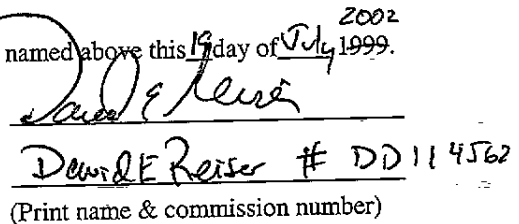 2002
named above this 19 day of July 1999.
David E Reiser
David E Reiser # DD114562
(Print name & commission number)